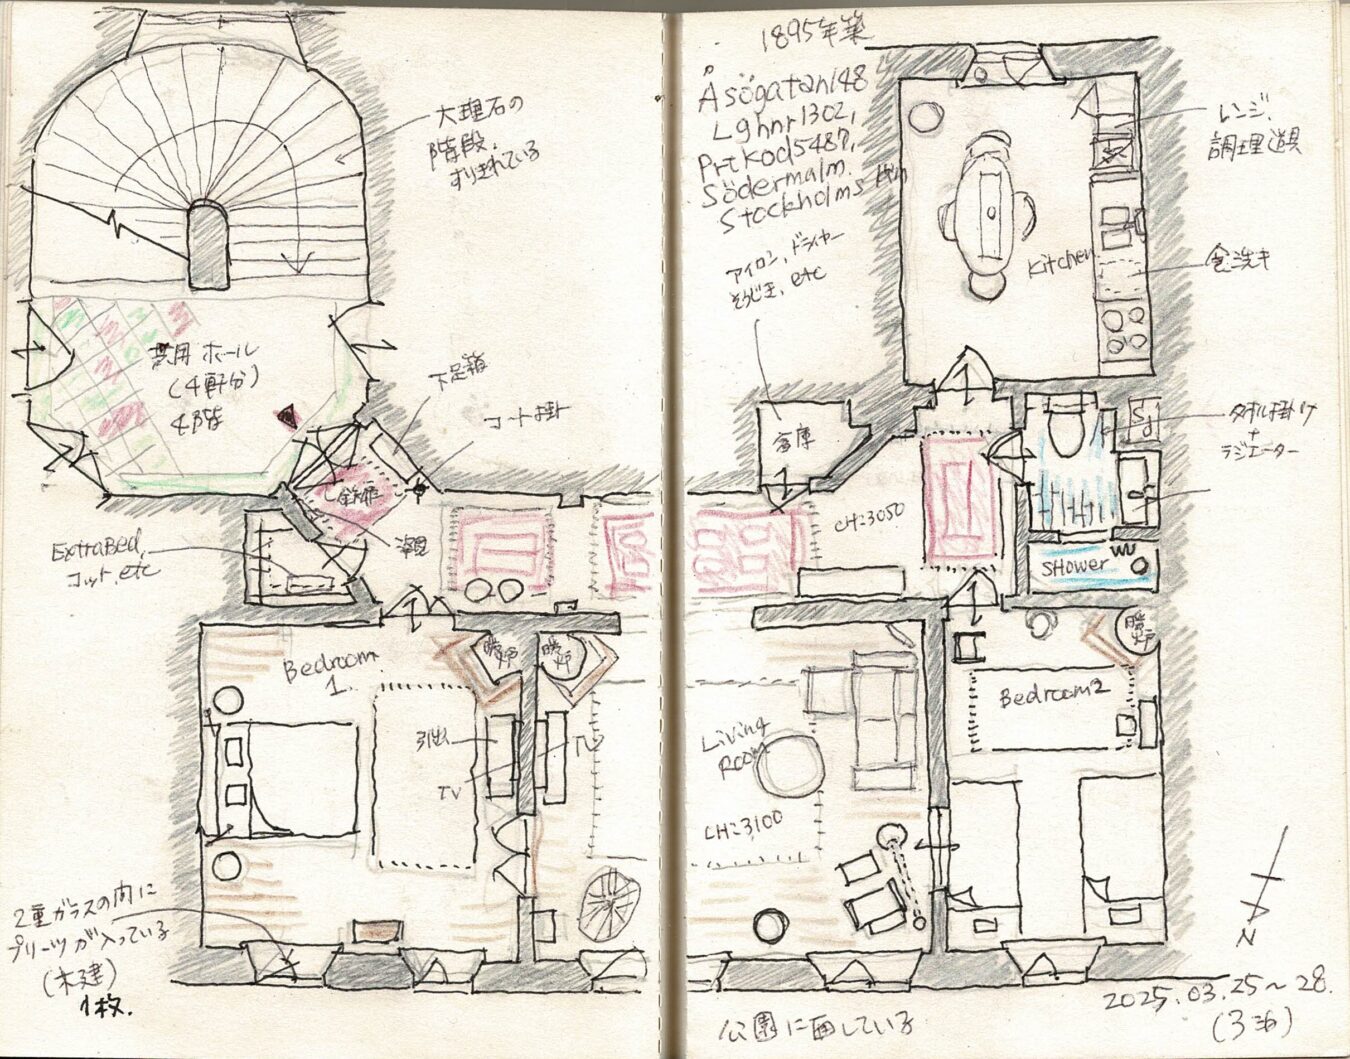 大理石の
階段.
すりきれている
1895年築
Åsögatan148
Lghnr1302,
Prtkod5487,
Södermalm.
Stockholms län
アイロン、ドライヤー
そうじき、etc
レンジ.
調理道具
Kitchen
食洗キ
共用ホール
(4軒分)
4階
下足箱
コート掛
玄関
倉庫
CH=3050
タオル掛け
+
ラジエーター
SHower
ExtraBed,
コット.etc
Bedroom
1.
暖炉
暖炉
暖炉
Bedroom2
引出
TV
TV
Living
Room
CH=3100
2重ガラスの内に
プリーツが入っている
(木建)
1枚.
N
公園に面している
2025.03.25~28.
(3泊)